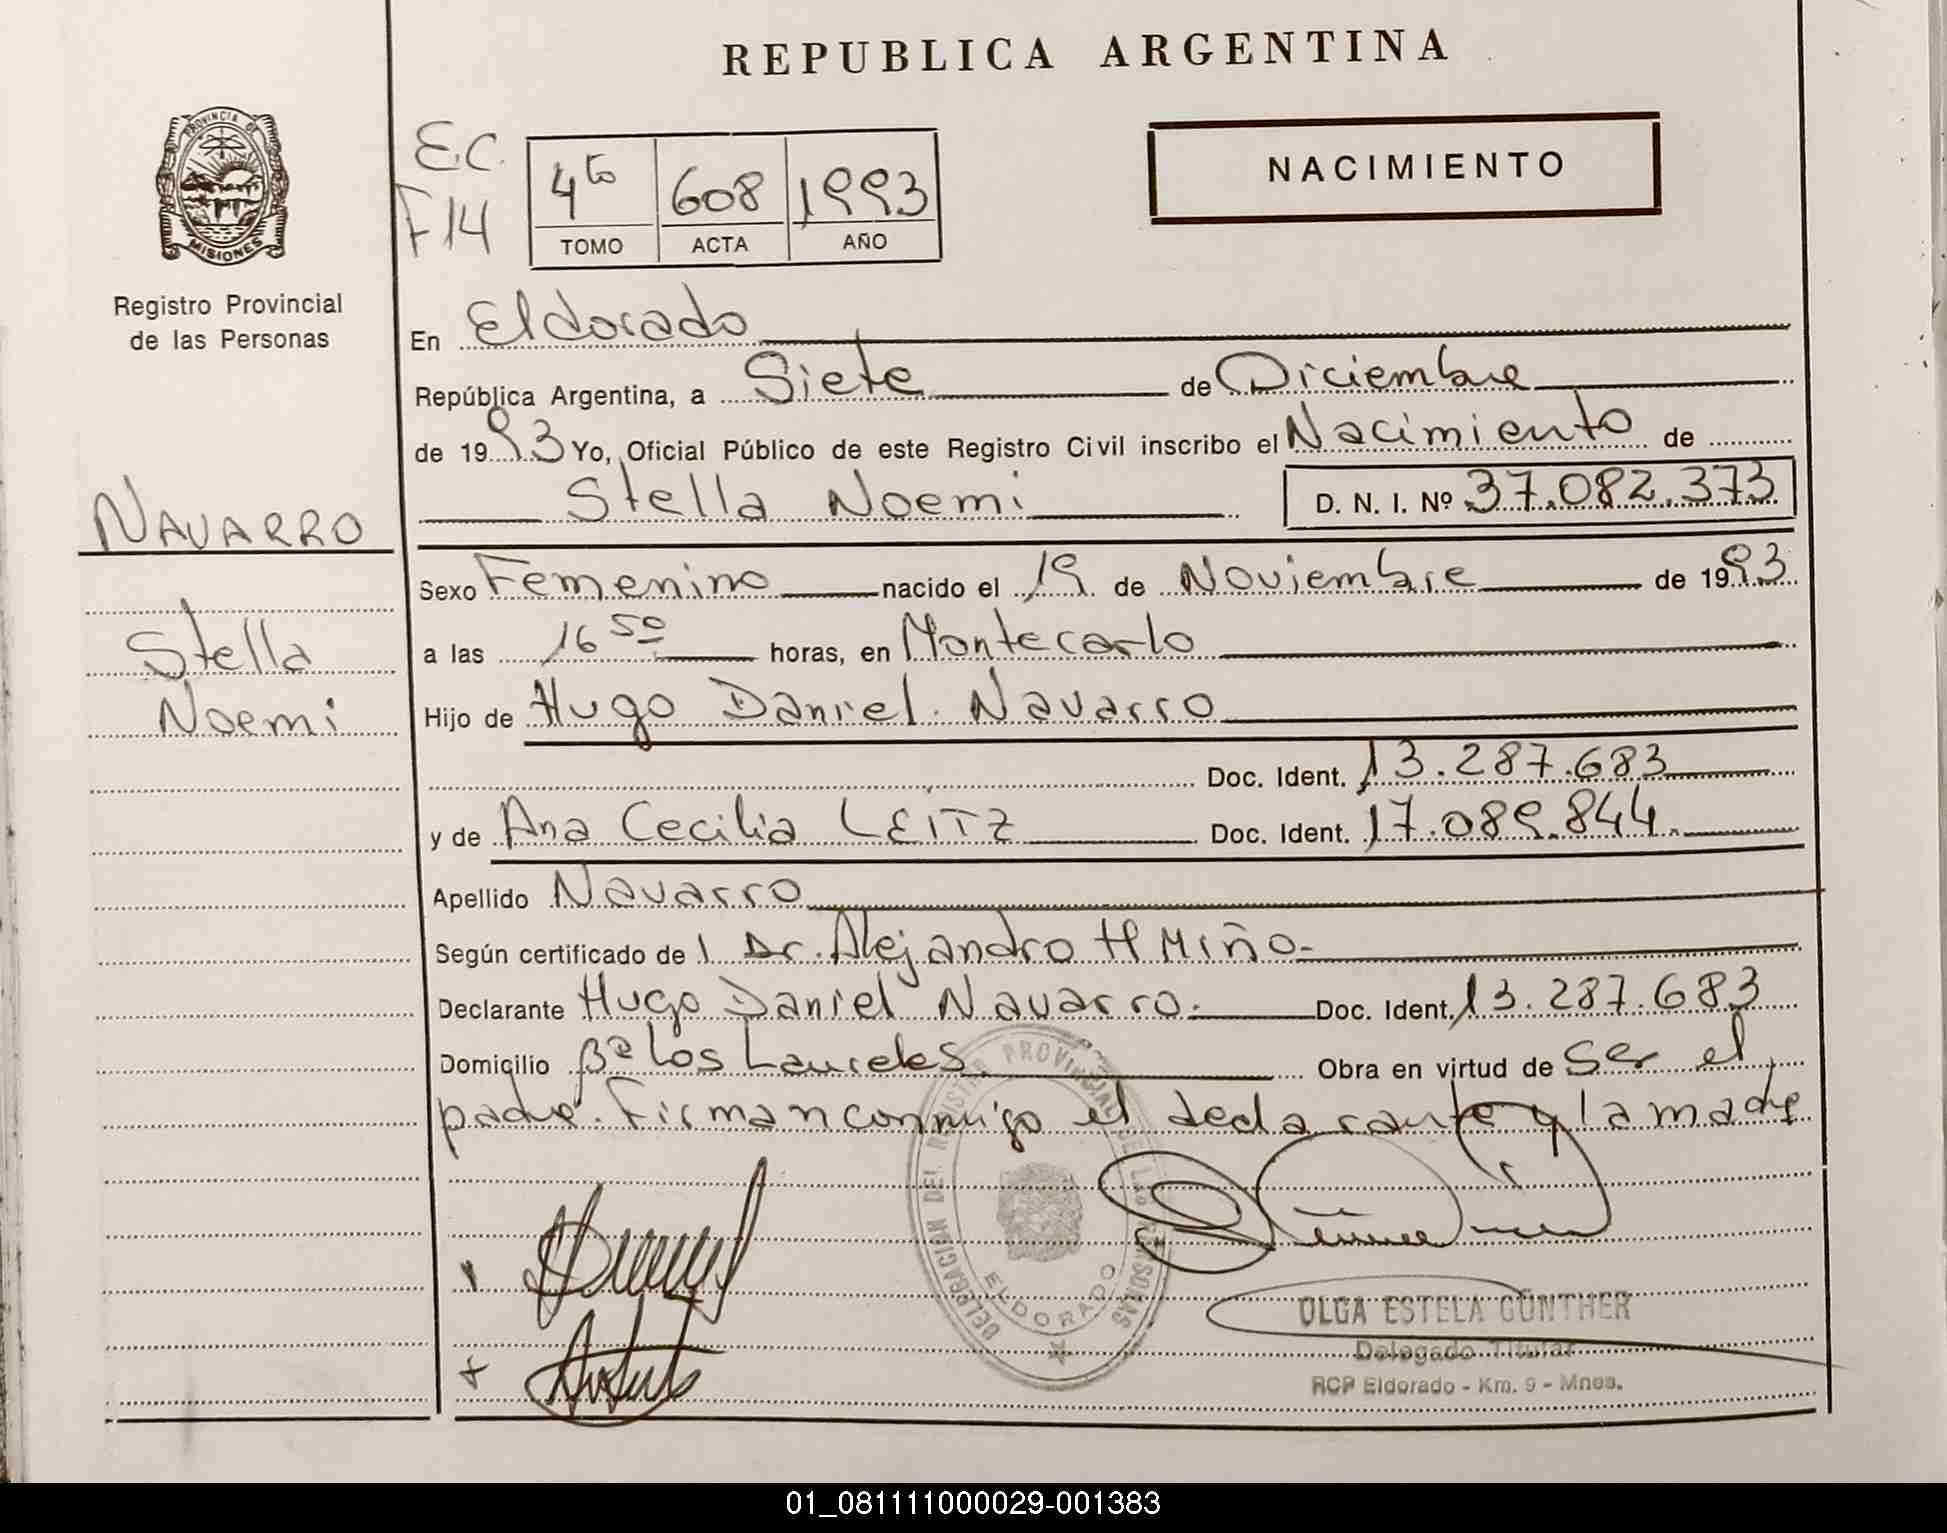 REPUBLICA ARGENTINA
PROVINCIA DE
MISIONES
Registro Provincial
de las Personas
E.C.
F14
4to 608 1993
TOMO ACTA AÑO
NACIMIENTO
En Eldorado
República Argentina, a Siete de Diciembre
de 1993 Yo, Oficial Público de este Registro Civil inscribo el Nacimiento de
Stella Noemi D. N. I. Nº 37.082.373
NAVARRO
Stella
Noemi
Sexo Femenino nacido el 19 de Noviembre de 1993
a las 16 50 horas, en Montecarlo
Hijo de Hugo Daniel Navarro
Doc. Ident. 13.287.683
y de Ana Cecilia LEITZ Doc. Ident. 17.089.844
Apellido Navarro
Según certificado de l Dr. Alejandro H Miño
Declarante Hugo Daniel Navarro. Doc. Ident. 13.287.683
Domicilio Bº Los Laureles Obra en virtud de Ser el
padre. Firman conmigo el declarante y la madre
DELEGACION DEL REGISTRO PROVINCIAL DE LAS PERSONAS
ELDORADO
OLGA ESTELA GÜNTHER
Delegado Titular
RCP Eldorado - Km. 9 - Mnes.
01_081111000029-001383